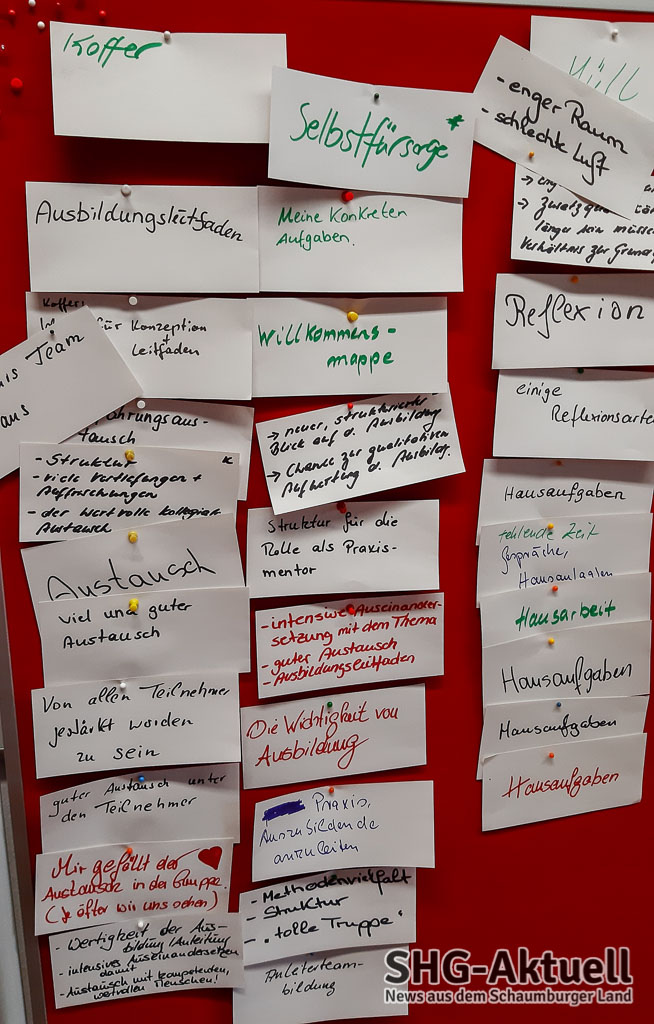 Koffer
Ausbildungsleitfaden
Koffers
für Konzeption
+
Leitfaden
Team
aus
tausch
- Struktur
- viele Vertiefungen +
Auffrischungen
- der wertvolle kollegiale
Austausch
Austausch
viel und guter
Austausch
Von allen Teilnehmer
gestärkt worden
zu sein
guter Austausch unter
den Teilnehmer
Mir gefällt der
Austausch in der Gruppe.
(je öfter wir uns sehen)
- Wertigkeit der Aus-
bildung/Anleitung
- intensives Auseinandersetzen
damit
- Austausch mit kompetenten,
wertvollen Menschen!
Selbstfürsorge *
Meine Konkreten
Aufgaben.
Willkommens-
mappe
→ neuer, strukturierter
Blick auf d. Ausbildung
→ Chance zur qualitativen
Aufwertung d. Ausbild.
Struktur für die
Rolle als Praxis-
mentor
- intensive Auseinander-
setzung mit dem Thema
- guter Austausch
- Ausbildungsleitfaden
Die Wichtigkeit von
Ausbildung
Praxis,
Auszubildende
anzuleiten
- Methodenvielfalt
- Struktur
- „tolle Truppe"
Anleiterteam-
bildung
- enger Raum
- schlechte Luft
→
→
länger sein müssen
Verhältnis zur
Reflexion
einige
Reflexionsarten
Hausaufgaben
fehlende Zeit
Gespräche,
Hausaufgaben
Hausarbeit
Hausaufgaben
Hausaufgaben
Hausaufgaben
SHG-Aktuell
News aus dem Schaumburger Land